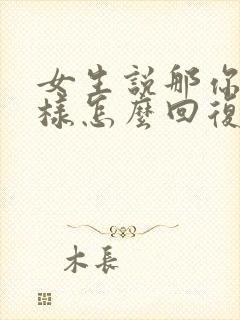 女生説那你
樣怎麼回復
木長